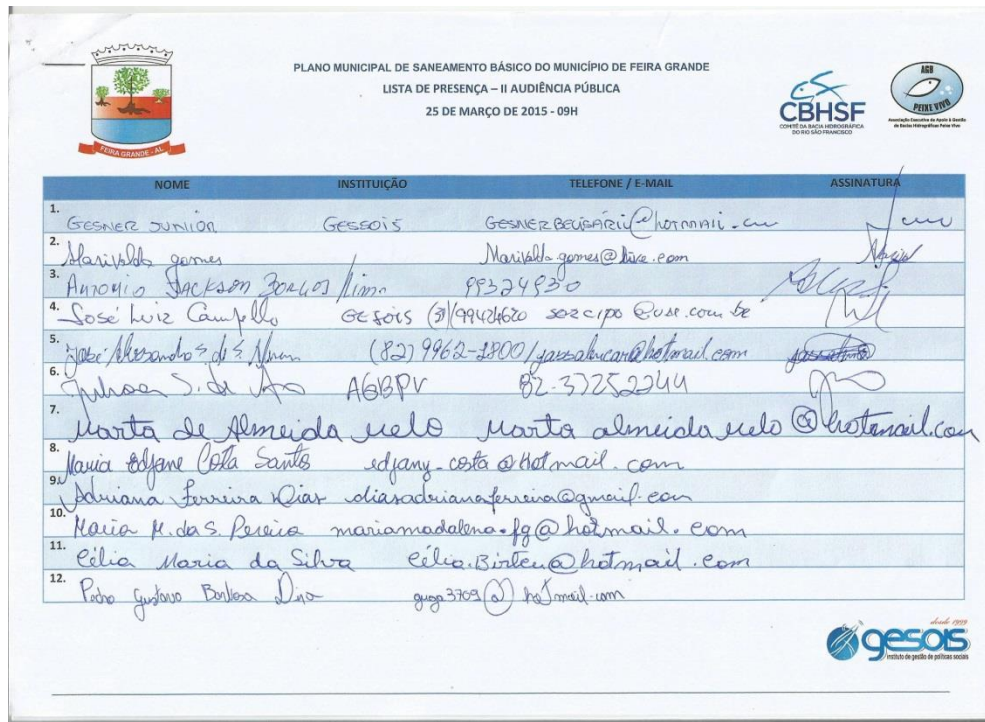 PLANO MUNICIPAL DE SANEAMENTO BÁSICO DO MUNICÍPIO DE FEIRA GRANDE
LISTA DE PRESENÇA – II AUDIÊNCIA PÚBLICA
25 DE MARÇO DE 2015 - 09H
FEIRA GRANDE - AL
CBHSF
COMITÊ DA BACIA HIDROGRÁFICA
DO RIO SÃO FRANCISCO
AGB
PEIXE VIVO
Associação Executiva de Apoio à Gestão
de Bacias Hidrográficas Peixe Vivo
NOME INSTITUIÇÃO TELEFONE / E-MAIL ASSINATURA
1. GESNER JUNIÓR GESSOIS
2. Marivalda gomes Marivalda.gomes@live.com
3. ANTONIO JACKSON BORGES Lima 99324930
4. José Luiz Campello GESOIS
5. José (82) 9962-1800/
6. AGBPV 82-37252244
7. Marta de Almeida Melo Marta almeida melo @hotmail.com
8. Maria Edjane Costa Santos edjany-costa@hotmail.com
9. Adriana Ferreira Dias diasadrianaferreira@gmail.com
10. Maria M. da S. Pereira mariamadalena.fg@hotmail.com
11. Célia Maria da Silva @hotmail.com
12. Pedro Gustavo Barbosa guga3709@hotmail.com
desde 1999
gesois
instituto de gestão de políticas sociais